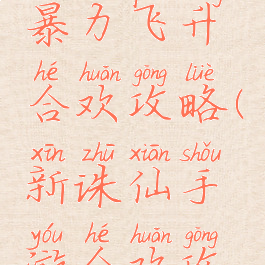 暴力飞升
hé huān gōng lüè
合欢攻略(
xīn zhū xiān shǒu
新诛仙手
yóu hé huān gōng
游合欢攻